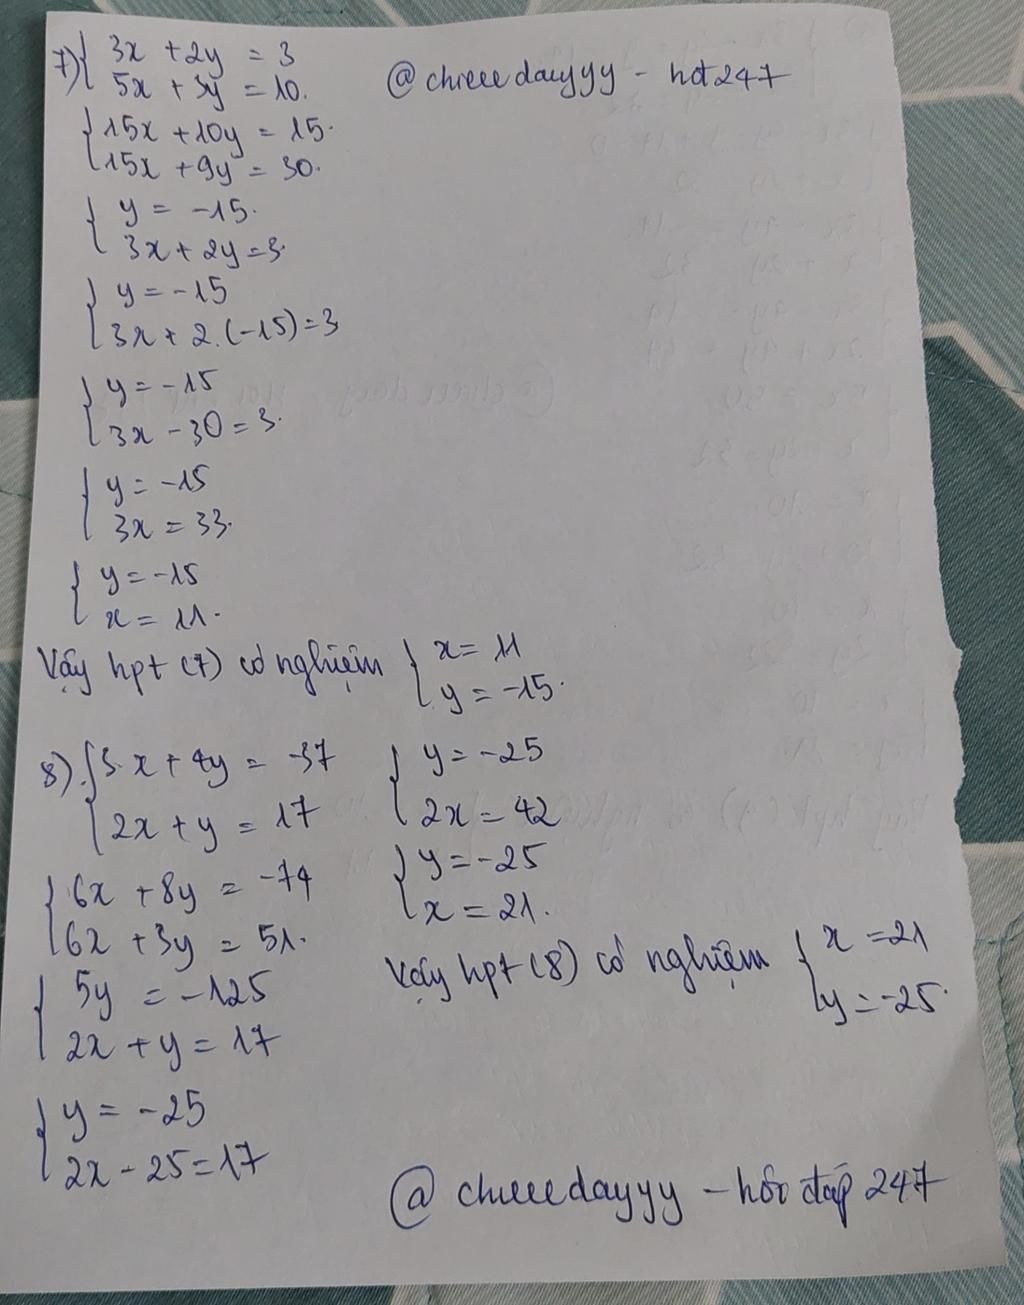 7) { 3x + 2y = 3
5x + 3y = 10.
@chieeedayyy - hđ247
{ 15x + 10y = 15.
15x + 9y = 30.
{ y = -15.
3x + 2y = 3.
{ y = -15
3x + 2.(-15) = 3
{ y = -15
3x - 30 = 3.
{ y = -15
3x = 33.
{ y = -15
x = 11.
Vậy hpt (7) có nghiệm { x = 11
y = -15.
8) { 3x + 4y = -37
2x + y = 17
{ 6x + 8y = -74
6x + 3y = 51.
{ 5y = -125
2x + y = 17
{ y = -25
2x - 25 = 17
{ y = -25
2x = 42
{ y = -25
x = 21.
Vậy hpt (8) có nghiệm { x = 21
y = -25.
@chieeedayyy - hỏi đáp 247